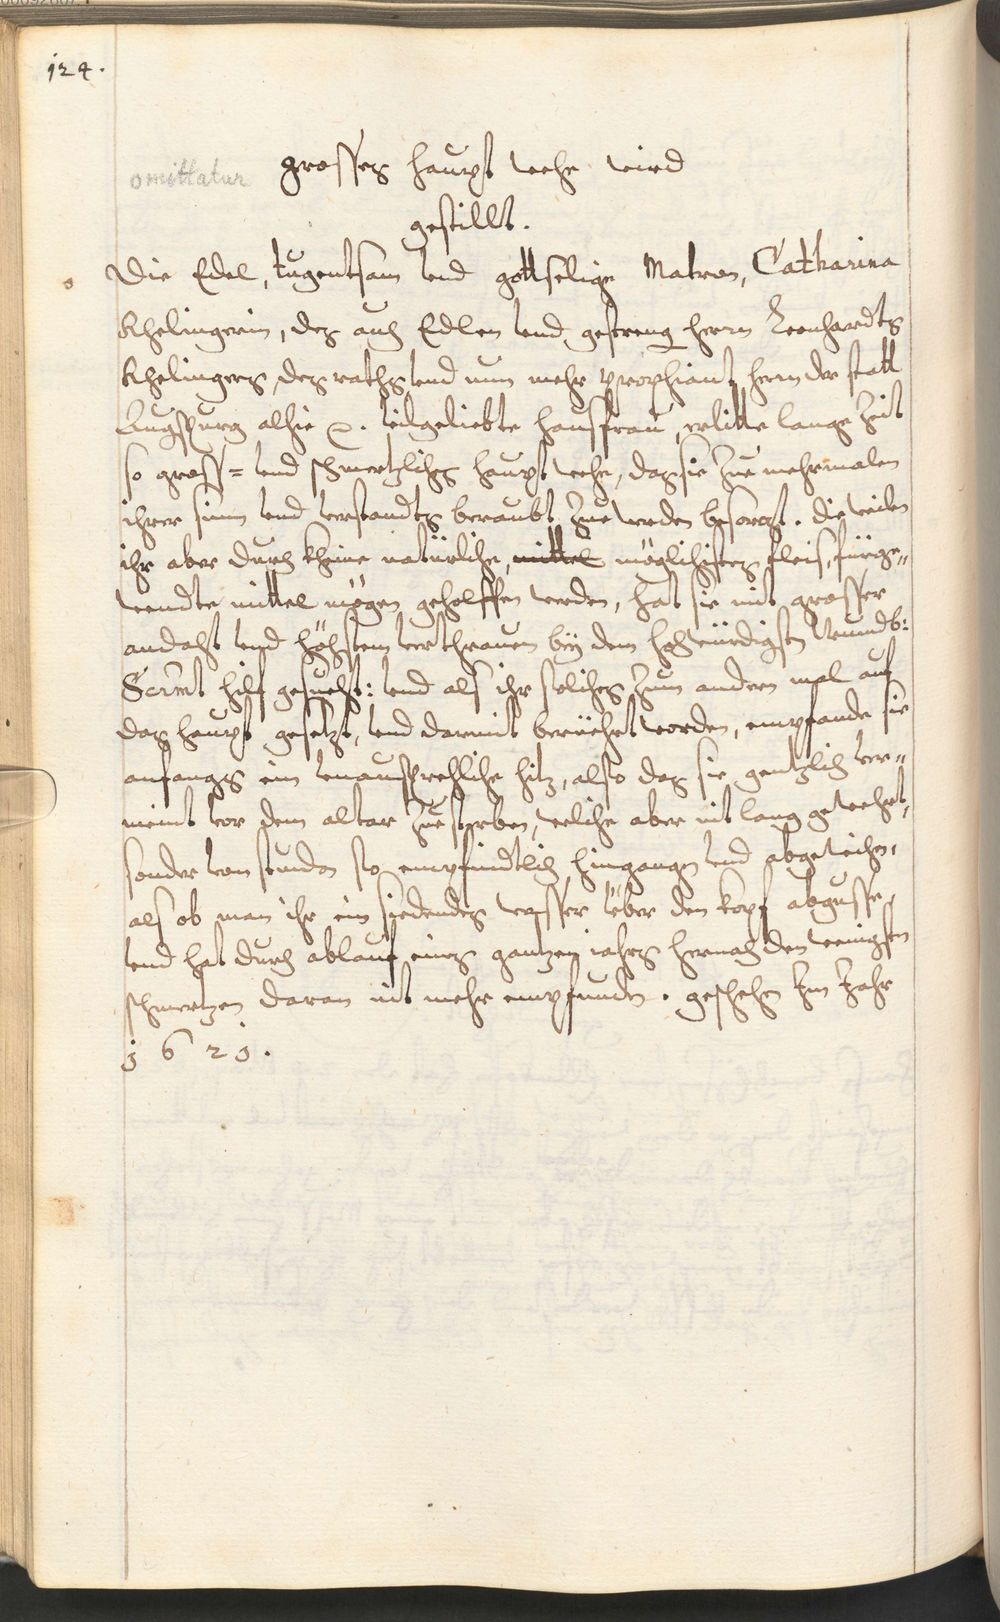 124.
omittatur
grosses haupt wehe wird
gestillt.
Die Edel, tugentsam vnd gottselige Matron, Catharina
Rhelingerin, des auch Edlen vnd gestreng herrn Leonhardts
Rhelingers des raths vnd nun mehr prophiant herrn der statt
Augspurg alhie &. vilgeliebte hausfrau, erlitte lange Zeit
so gross= vnd schmertzliches haupt wehe, das sie Zue mehrmalen
ihrer sinn vnd verstandts beraubt Zue werden besorgt. Dieweilen
ihr aber durch kheine natürliche, mittel möglichistes fleis, fürge„
wendte mittel mögen geholffen werden, hat sie mit grosser
andacht vnd höchstem verthrauen bey dem hochwürdigsten Wundb:
Sacrmt hilf gesucht: vnd als ihr soliches Zum andern mal auf
das haupt gesetzt, vnd darmit berüehrt worden, empfande sie
anfangs ein vnaussprechliche hitz, also das sie gentzlich ver„
meint vor dem altar Zue sterben, welche aber nit lang gewehrt,
sonder von stundan so empfindtlich hingangen vnd abgewichen,
als ob man ihr ein siedendes wasser über den kopf abgusse,
vnd hat durch ablauf eines gantzen iahrs hernach den wenigsten
schmertzen daran nit mehr empfunden. geschehen Im Jahr
1621.